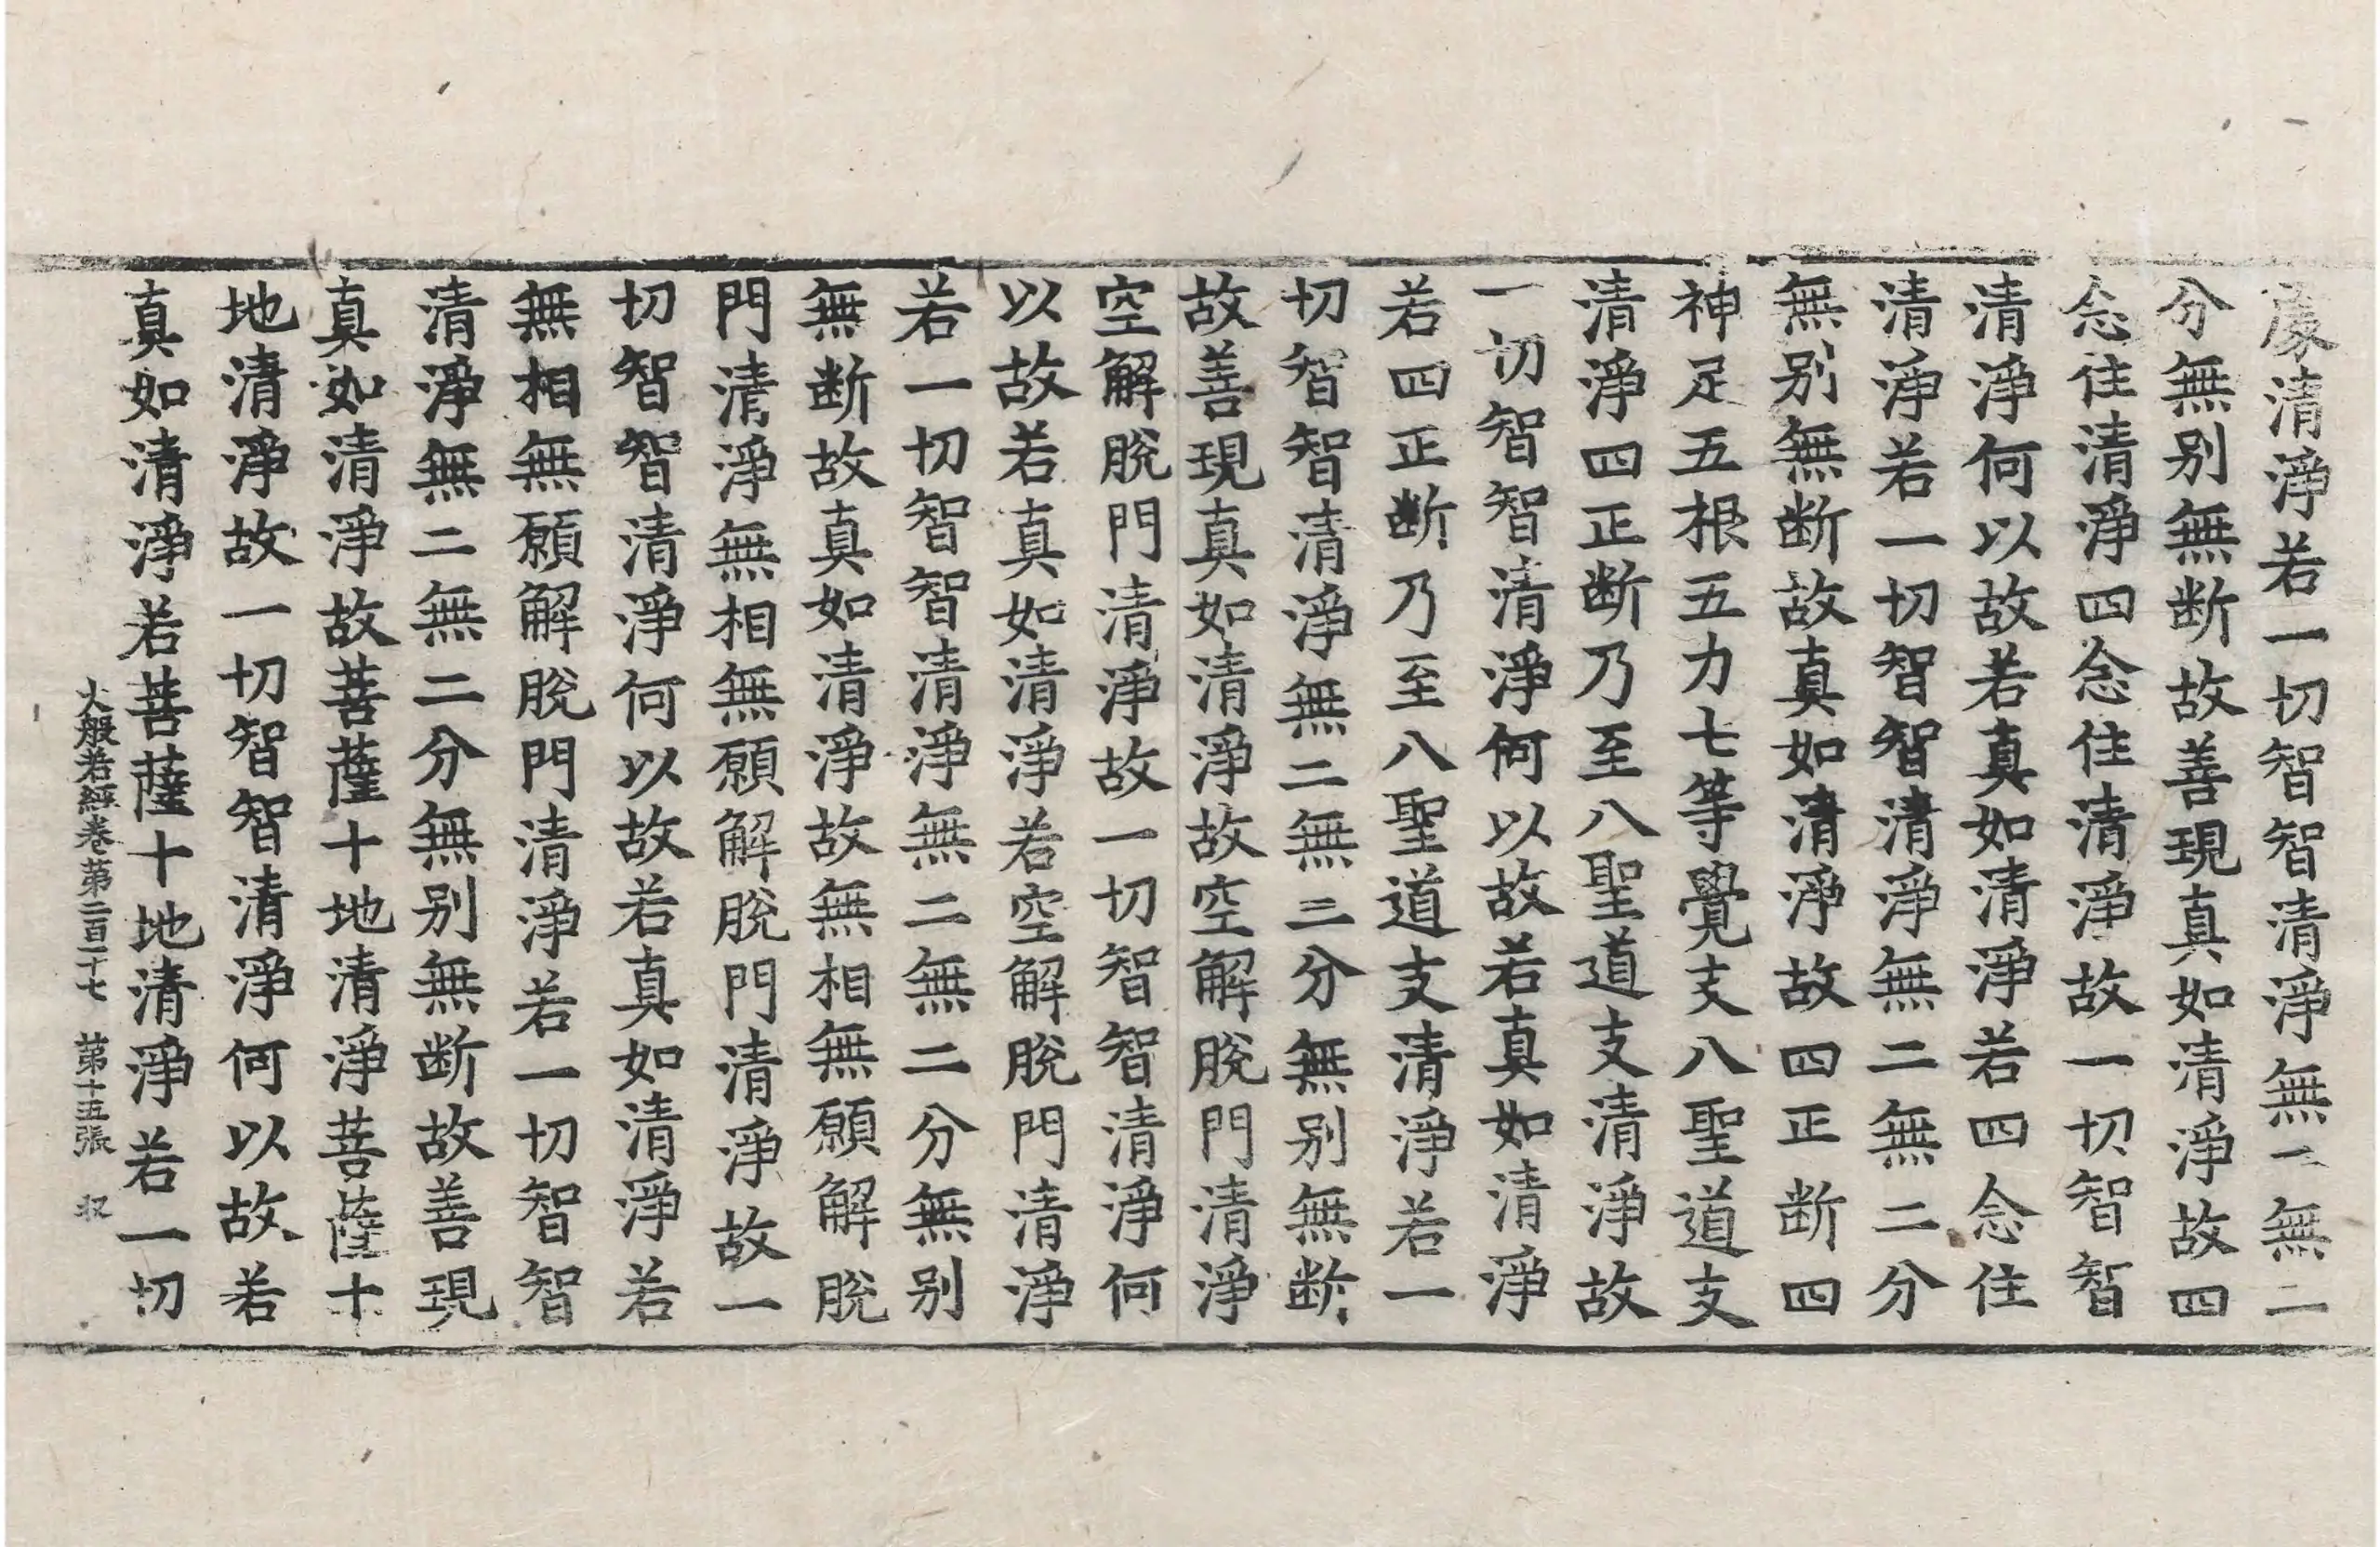 處清淨若一切智智清淨無二無二
分無別無断故善現真如清淨故四
念住清淨四念住清淨故一切智智
清淨何以故若真如清淨若四念住
清淨若一切智智清淨無二無二分
無別無断故真如清淨故四正断四
神足五根五力七等覺支八聖道支
清淨四正断乃至八聖道支清淨故
一切智智清淨何以故若真如清淨
若四正断乃至八聖道支清淨若一
切智智清淨無二無二分無別無断
故善現真如清淨故空解脫門清淨
空解脫門清淨故一切智智清淨何
以故若真如清淨若空解脫門清淨
若一切智智清淨無二無二分無別
無断故真如清淨故無相無願解脫
門清淨無相無願解脫門清淨故一
切智智清淨何以故若真如清淨若
無相無願解脫門清淨若一切智智
清淨無二無二分無別無断故善現
真如清淨故菩薩十地清淨菩薩十
地清淨故一切智智清淨何以故若
真如清淨若菩薩十地清淨若一切
大般若經卷第二百二十七 第十五張 収